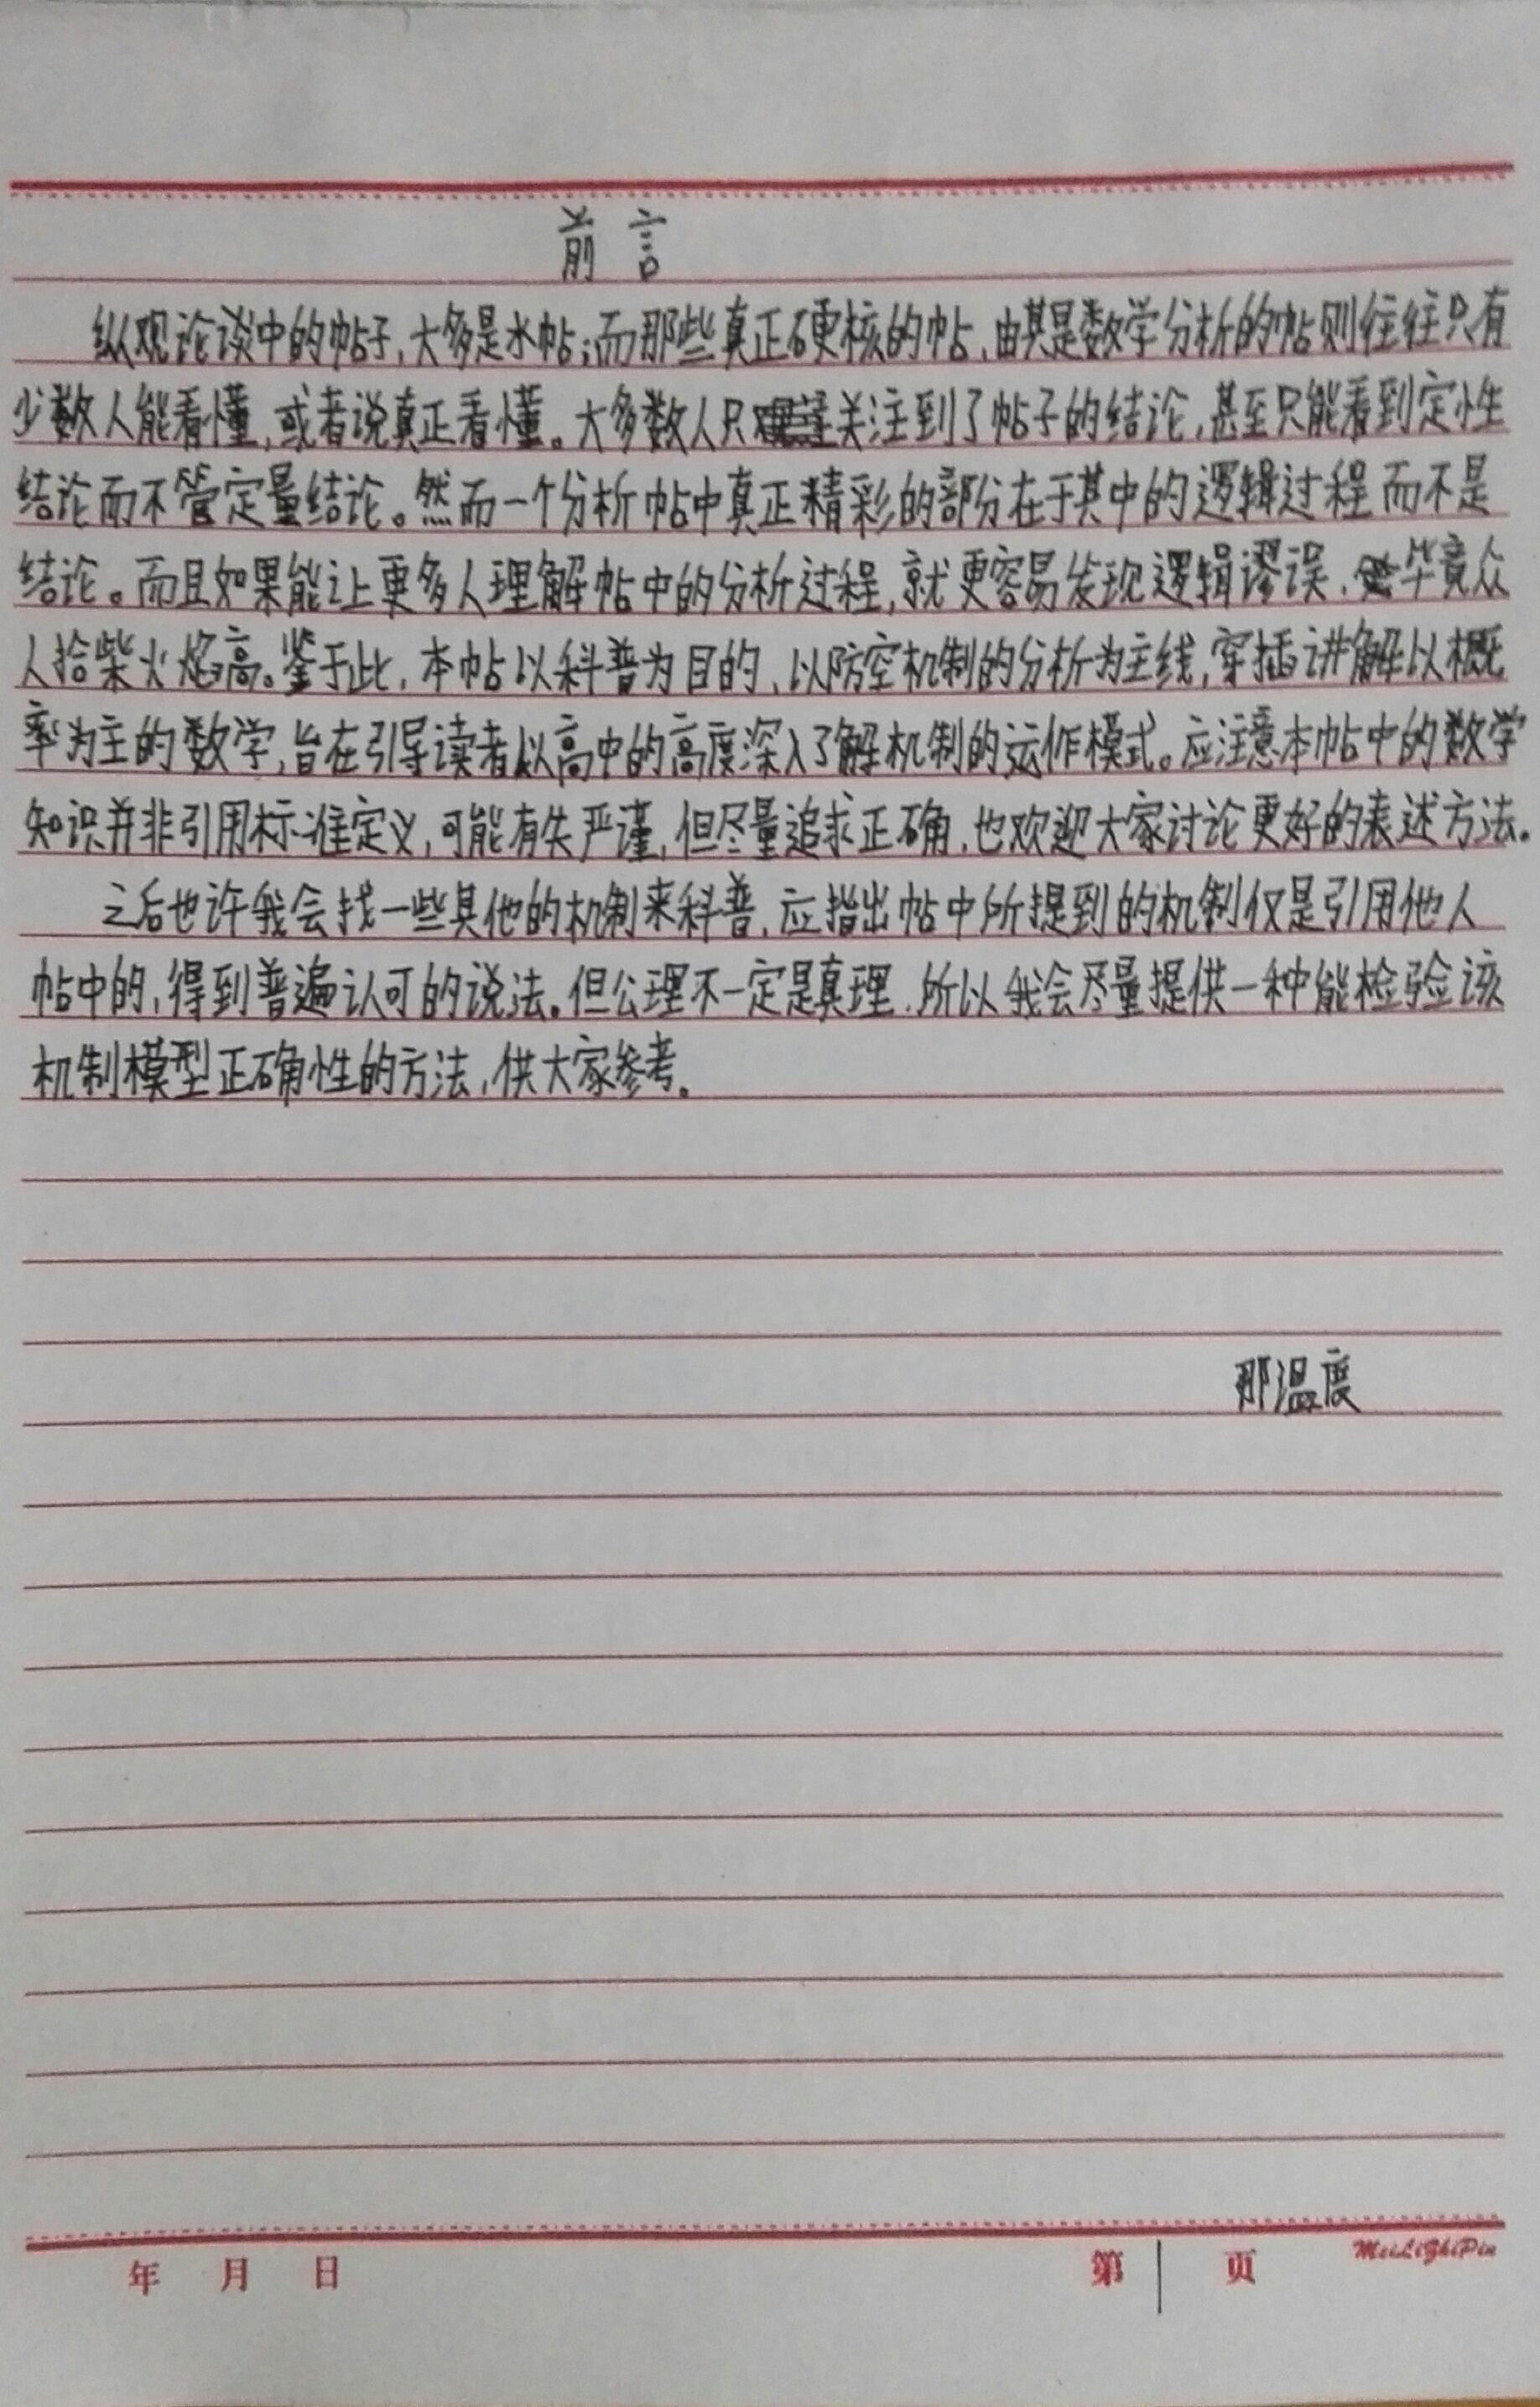 前言
纵观论谈中的帖子,大多是水帖;而那些真正硬核的帖,由其是数学分析的帖则往往只有
少数人能看懂,或者说真正看懂。大多数人只关注到了帖子的结论,甚至只能看到定性
结论而不管定量结论。然而一个分析帖中真正精彩的部分在于其中的逻辑过程而不是
结论。而且如果能让更多人理解帖中的分析过程,就更容易发现逻辑谬误,毕竟众
人拾柴火焰高。鉴于此,本帖以科普为目的,以防空机制的分析为主线,穿插讲解以概
率为主的数学,旨在引导读者以高中的高度深入了解机制的运作模式。应注意本帖中的数学
知识并非引用标准定义,可能有失严谨,但尽量追求正确,也欢迎大家讨论更好的表述方法。
之后也许我会找一些其他的机制来科普,应指出帖中所提到的机制仅是引用他人
帖中的,得到普遍认可的说法。但公理不一定是真理,所以我会尽量提供一种能检验该
机制模型正确性的方法,供大家参考。
那温度
年 月 日 第 1 页 MeiLiZhiPin